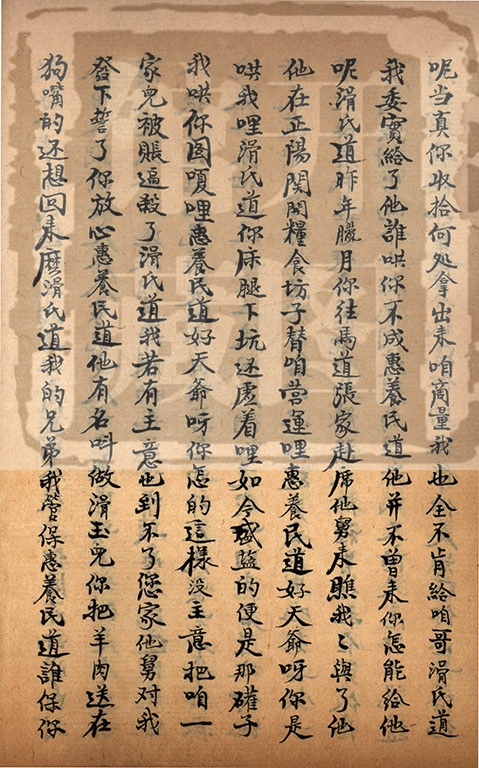 呢当真你收拾何处拿出来咱商量我也全不肯给咱哥滑氏道
我委實給了他誰哄你不成惠養民道他并不曾来你怎能給他
呢滑氏道昨年臘月你往馬道張家赴席他舅来瞧我〻與了他
他在正陽関開糧食坊子替咱营運哩惠養民道好天爺呀你是
哄我哩滑氏道你床腿下坑还虚着哩如今盛盐的便是那礶子
我哄你图嗄哩惠養民道好天爺呀你怎的這樣没主意把咱一
家兒被賬逼殺了滑氏道我若有主意也到不了您家他舅对我
發下誓了你放心惠養民道他有名叫做滑玉兒你把羊肉送在
狗嘴的还想回来麽滑氏道我的兄弟我管保惠養民道誰保你